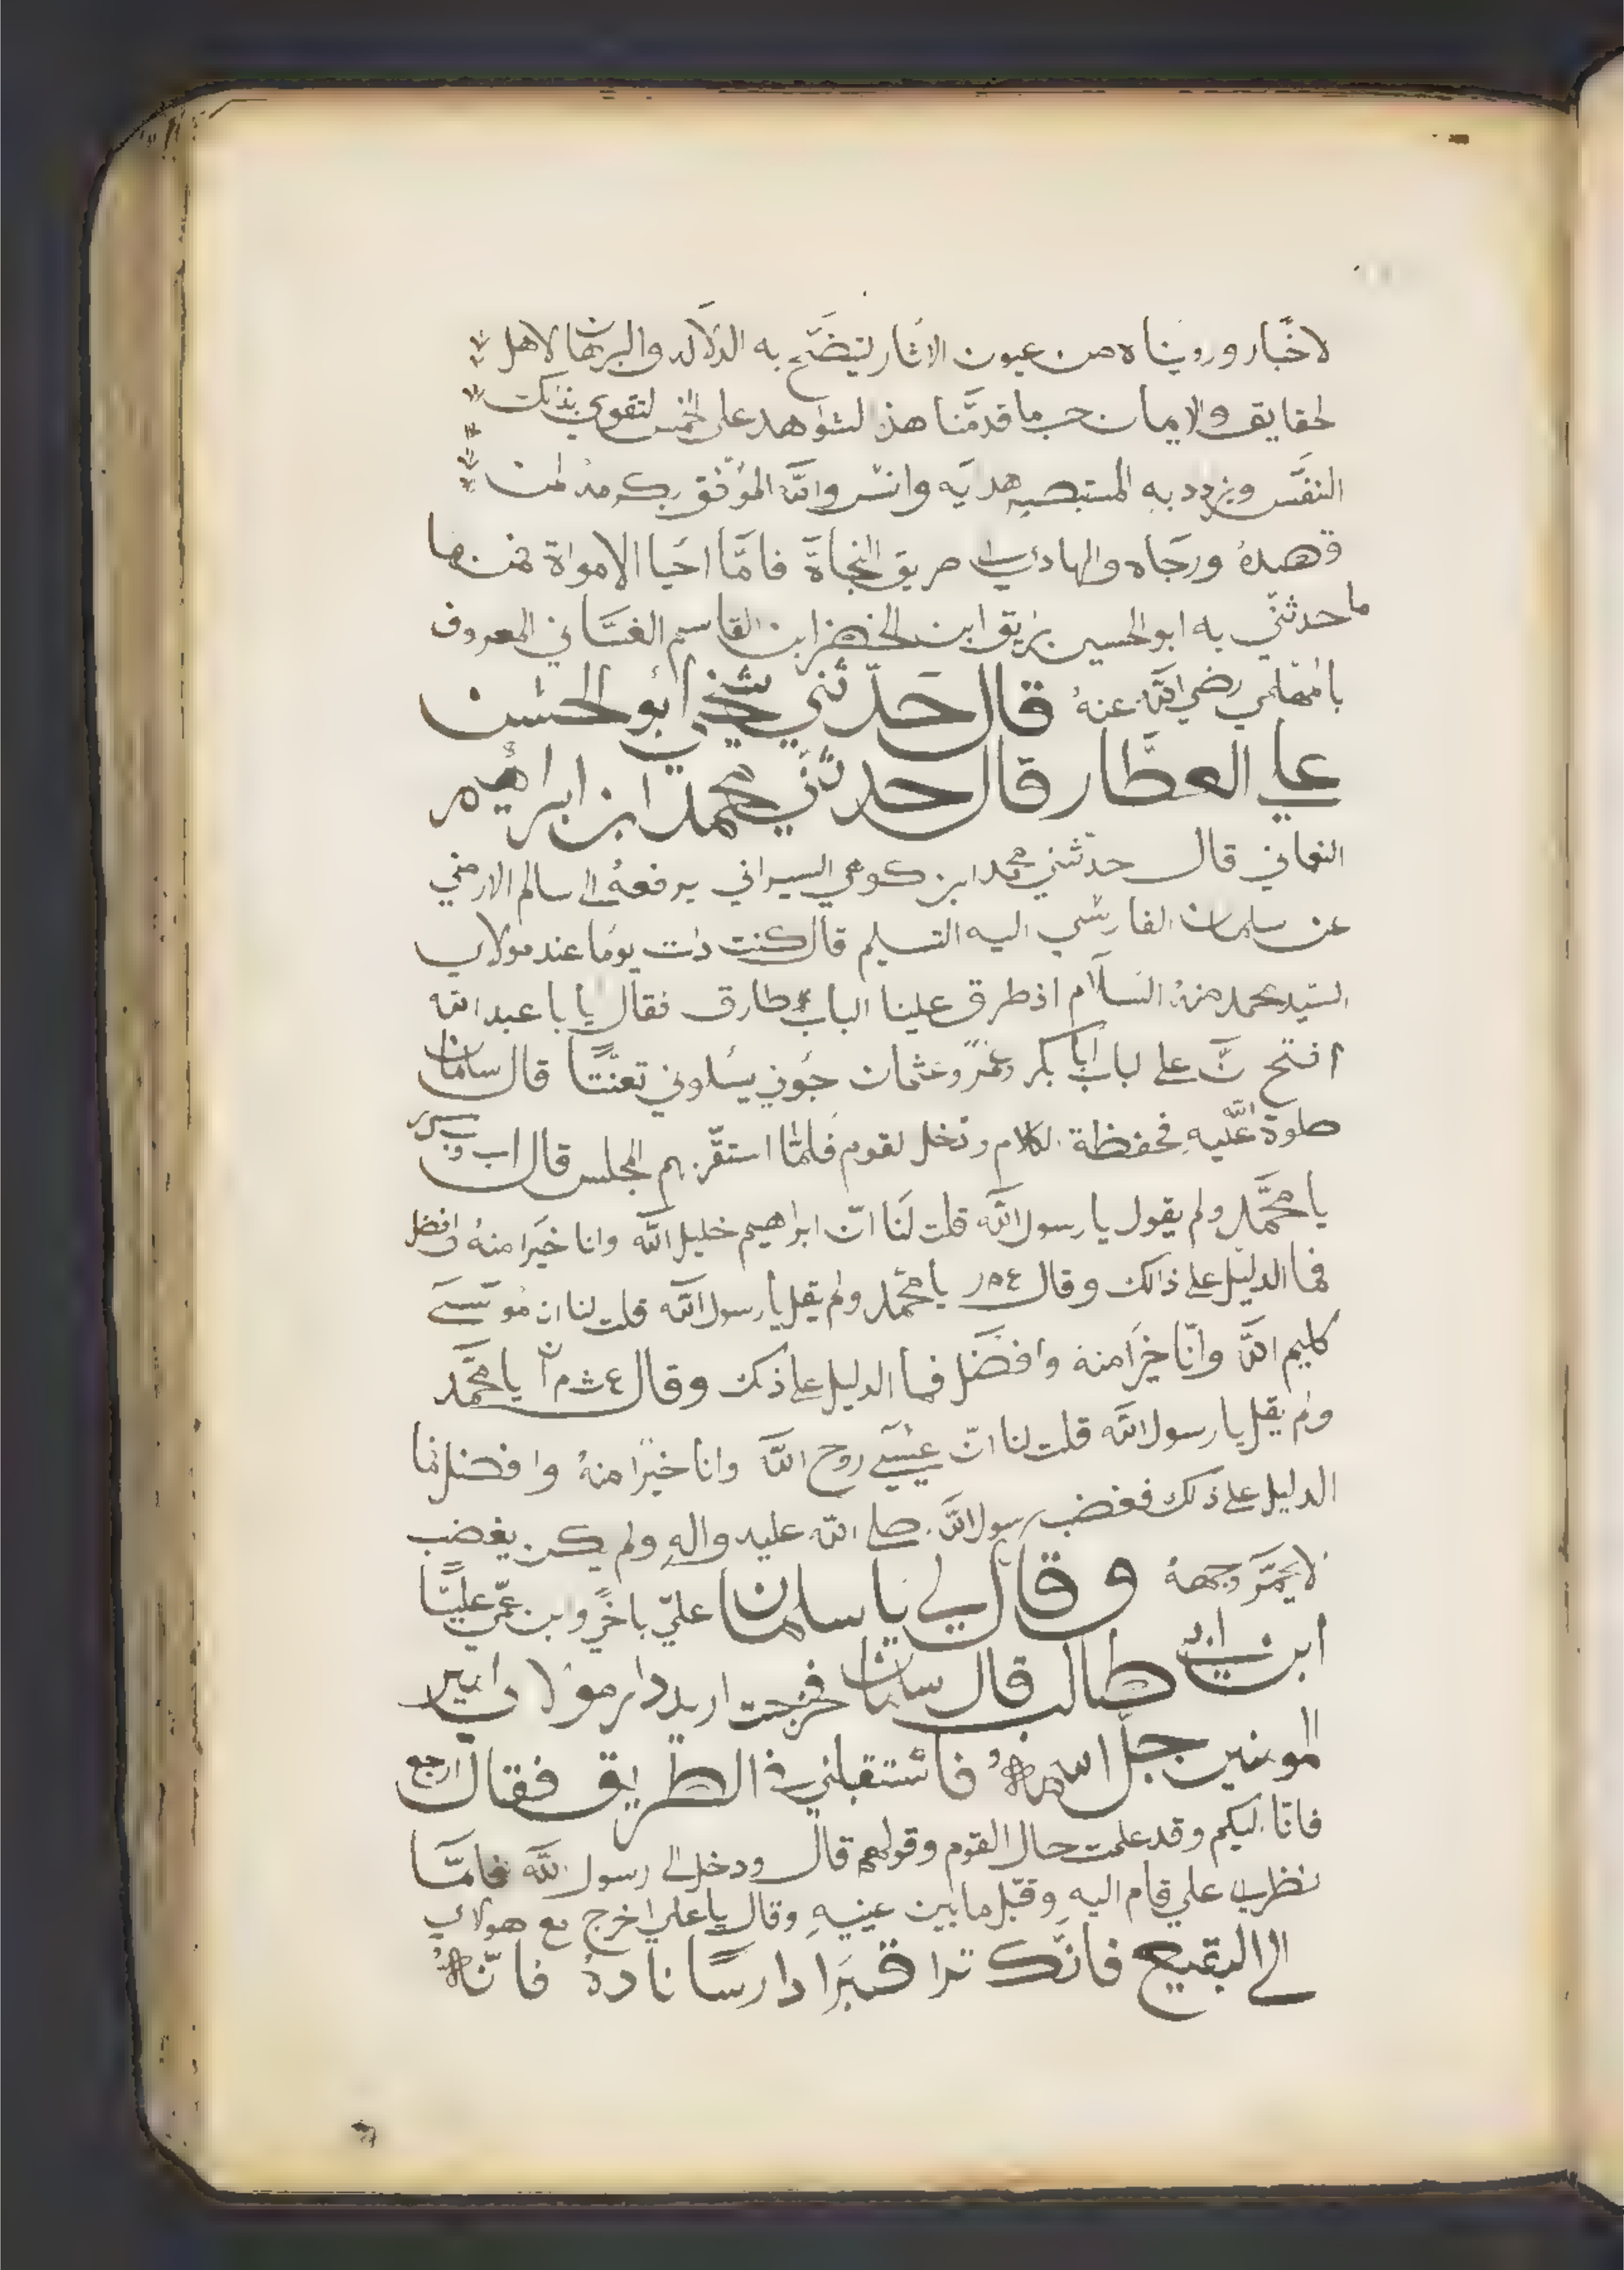 لاخبار ورويناه من عيون الاثار ليتضح به الدلاله والبرهان لاهل
لحقايق والايمان حسب ما قدمنا هذ لشواهد على الخمس لتقوي بذلك
النفس ويزدد به المستبصر هدايه وانس والله الموفق بكرمه لمن
قصده ورجاه والهادي الى طريق النجاة فامّا احيا الامواة فمنها
ما حدثني به ابو الحسين بزيق ابن الخضر ابن القاسم الغسّاني المعروف
رضي الله عنهُ قال حدّثني شيخي ابو الحسن
علي العطّار قال حدثني محمد ابن ابراهيم
النعماني قال حدثني محمد ابن السيراني يرفعهُ الى سالم الارمني
عن سلمان الفارسي اليه التسليم قال كنت ذات يومًا عند مولاي
السّيد محمد منهُ السّلام اذ طرق علينا الباب طارق فقال يا با عبد الله
افتح نّ على لباب ابا بكر وعمرٌ وعثمان جوني يسلوني تعنّتًا قال سلمان
صلوة الله عليهِ فحفظة الكلام ودخل لقوم فلمّا استقرّ بهم المجلس قال اب وبكر
يا محمّد ولم يقول يا رسول الله قلت لنا انّ ابراهيم خليل الله وانا خيرا منهُ وافضل
فما الدليل على ذالك وقال ع م ر يا محمّد ولم يقل يا رسول الله قلت لنا ان موسى
كليم الله وانّا خيرًا منه وافضل فما الدليل على ذلك وقال ع ث م ان يا محمّد
ولم يقل يا رسول الله قلت لنا انّ عيسى روح الله وانا خيرًا منهُ وافضل فما
الدليل على ذلك فغضب رسول الله صلى الله عليه والهِ ولم يكن يغضب
لا يحمّر وجههُ وقال لي يا سلمان عليّ باخي وابن عمّي عليًّا
ابن ابي طالب قال سلمان فخرجت اريد دار مولاي امير
المومنين جلّ اسمهُ فاستقبلني في الطريق فقال ارجع
فانّا اليكم وقد علمت حال القوم وقولهم قال ودخل الى رسول الله فلمّا
نظر الى علي قام اليهِ وقبّل ما بين عينيهِ وقال يا علي اخرج مع هولاي
الى البقيع فانّك ترا قبرًا دارسًا نادهُ فانّهُ